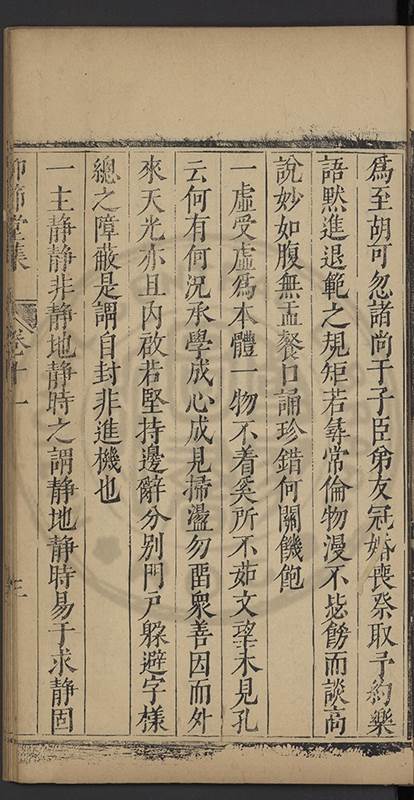 爲至胡可忽諸尚于子臣弟友冠婚喪祭取予約樂
語默進退範之規矩若彝常倫物漫不毖飭而談高
說妙如腹無盂餐口誦珍錯何關饑飽
一虛受虛爲本體一物不着奚所不茹文望未見孔
云何有何況承學成心成見掃盪勿畱衆善因而外
來天光亦且內啟若堅持邊辭分別門戶躱避字樣
總之障蔽是謂自封非進機也
一主静静非静地静時之謂静地静時易于求静固
仰節堂集
卷十一